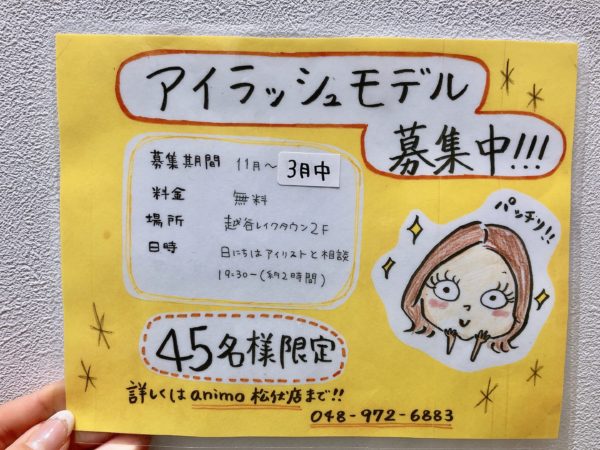 アイラッシュモデル
募集中!!!
募集期間 11月〜 3月中
料金 無料
場所 越谷レイクタウン2F
日時 日にちはアイリストと相談
19:30〜(約2時間)
パッチリ!!
45名様限定
詳しくはanimo 松伏店まで!!
048-972-6883